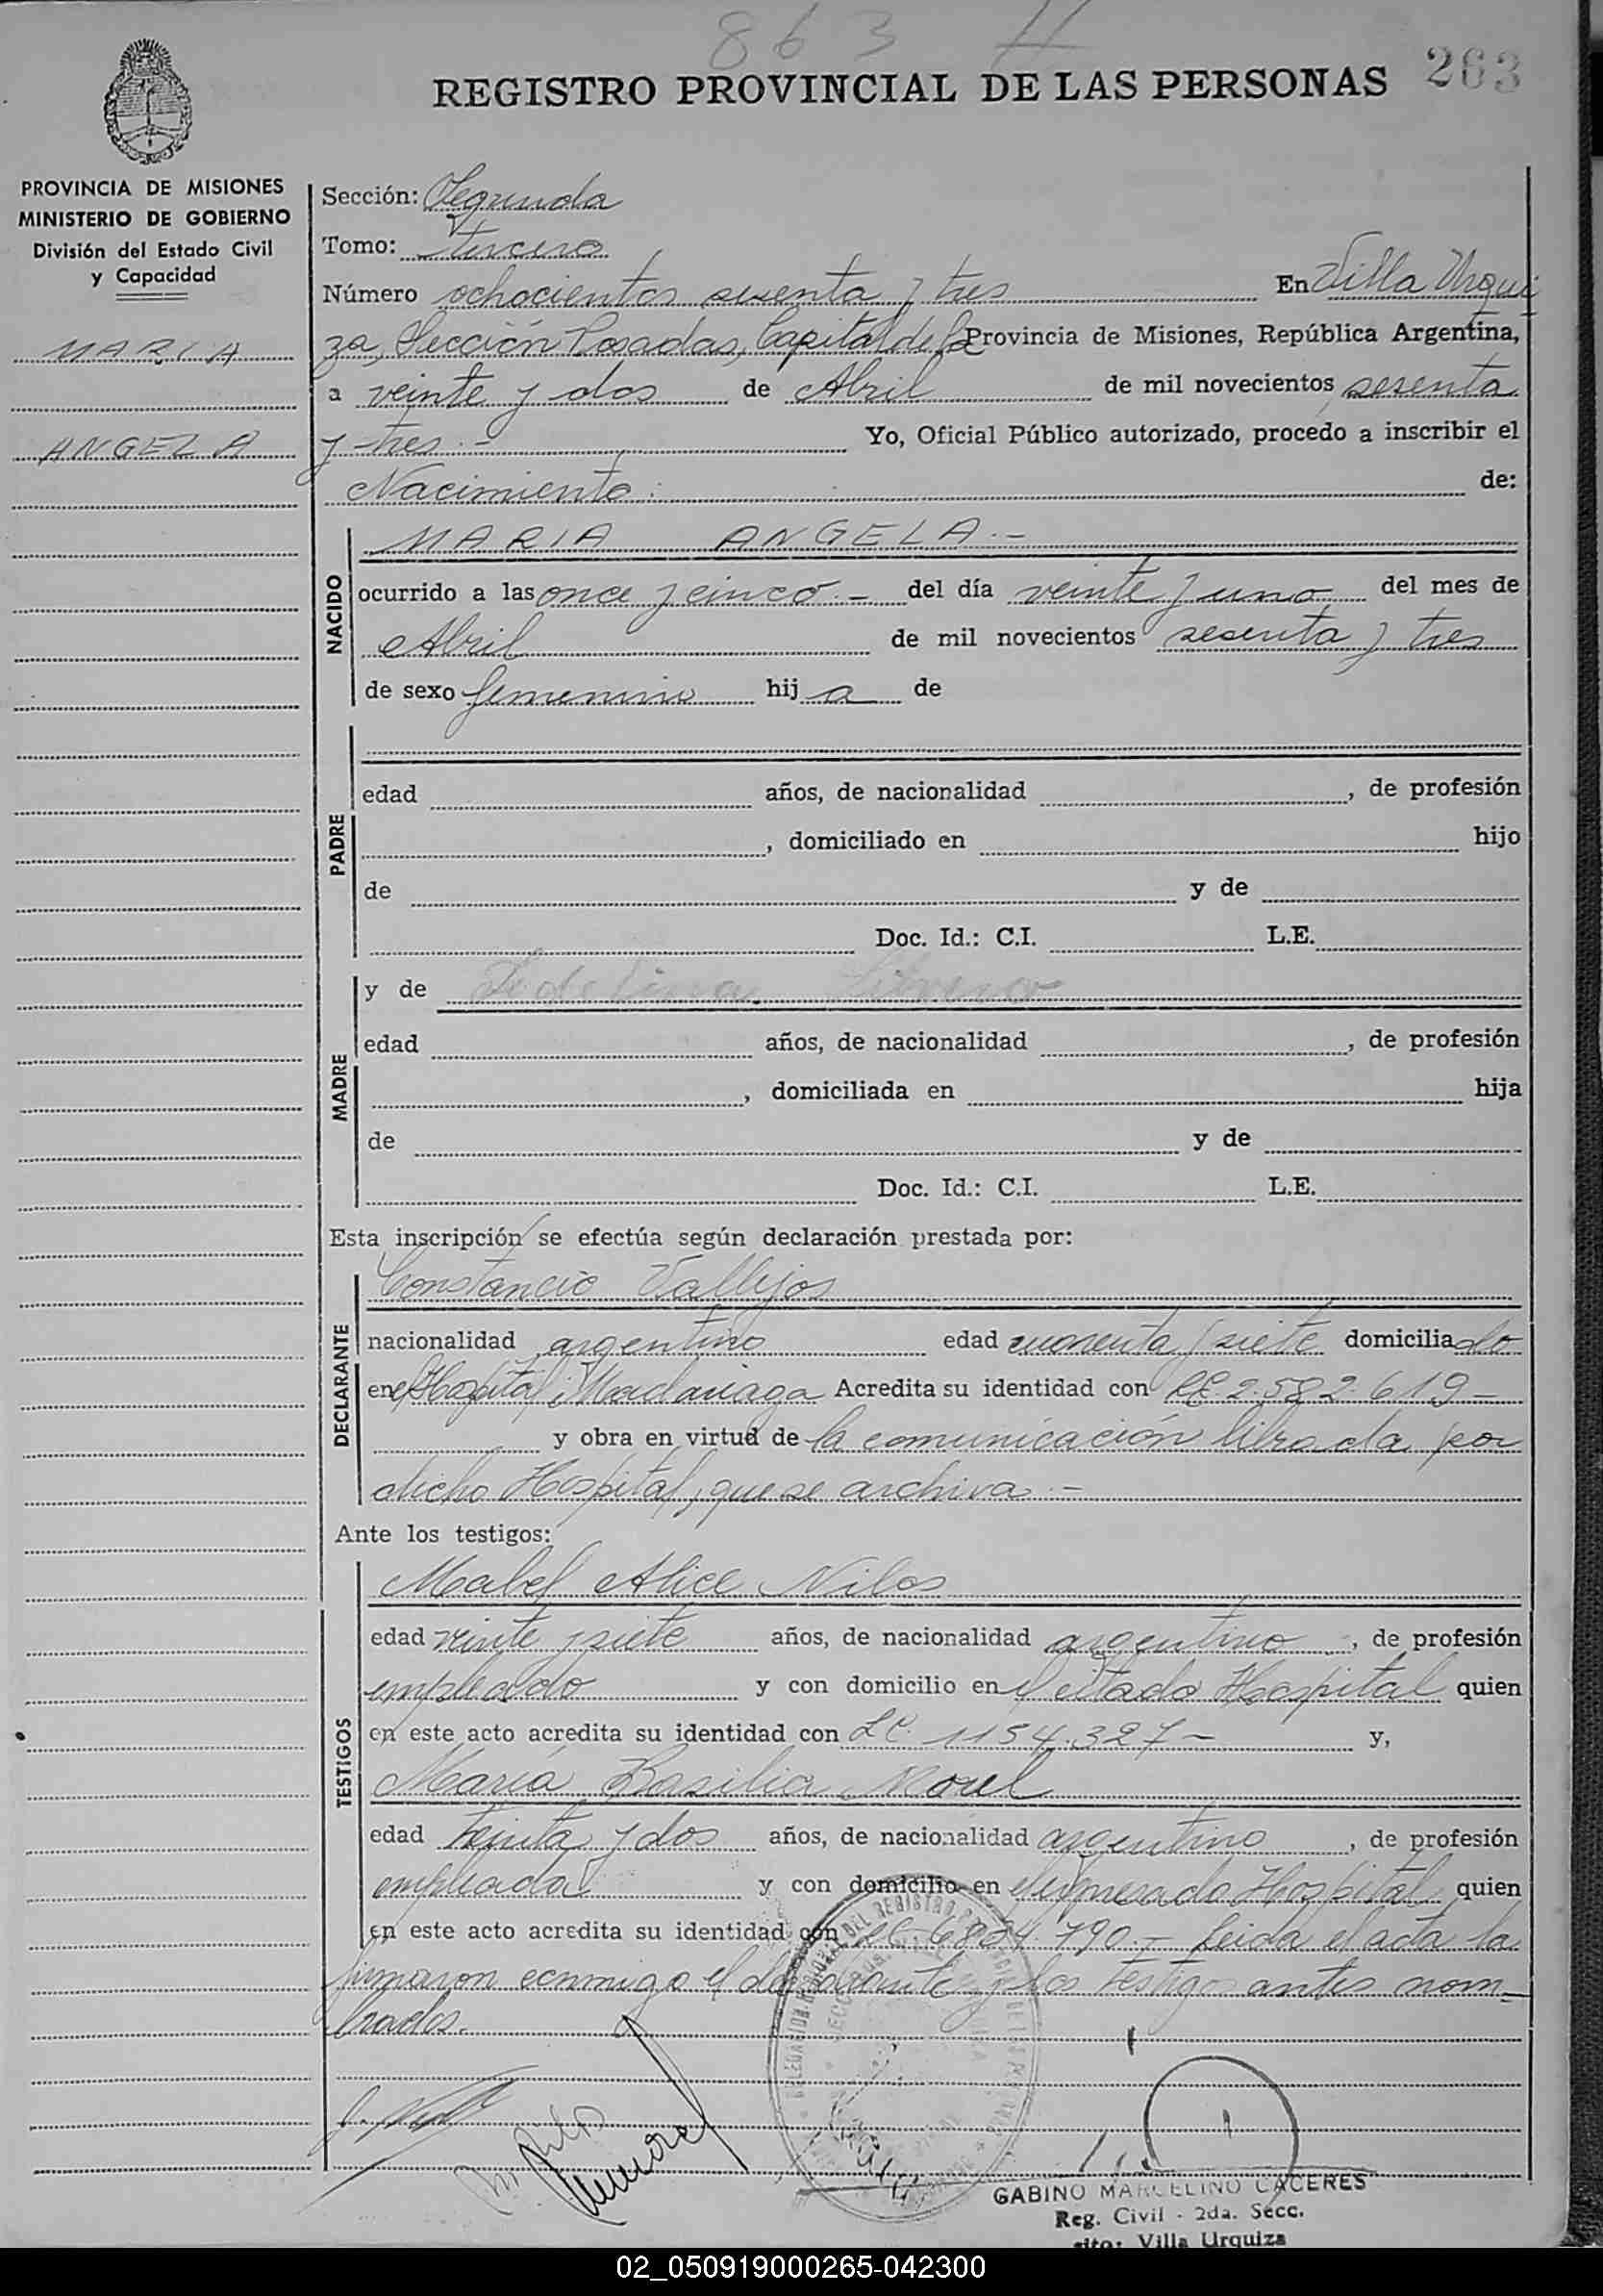 863
REGISTRO PROVINCIAL DE LAS PERSONAS
263
PROVINCIA DE MISIONES
MINISTERIO DE GOBIERNO
División del Estado Civil
y Capacidad
MARIA
ANGELA
Sección: Segunda
Tomo: tercero
Número ochocientos sesenta y tres En Villa Urqui
za, Sección Posadas, Capital de la Provincia de Misiones, República Argentina,
a veinte y dos de Abril de mil novecientos sesenta
y tres.- Yo, Oficial Público autorizado, procedo a inscribir el
Nacimiento: de:
NACIDO
MARIA ANGELA.-
ocurrido a las once y cinco.- del día veinte y uno del mes de
Abril de mil novecientos sesenta y tres
de sexo femenino hij a de
PADRE
edad años, de nacionalidad , de profesión
, domiciliado en hijo
de y de
Doc. Id.: C.I. L.E.
MADRE
y de
edad años, de nacionalidad , de profesión
, domiciliada en hija
de y de
Doc. Id.: C.I. L.E.
Esta inscripción se efectúa según declaración prestada por:
DECLARANTE
Constancio Vallejos
nacionalidad argentino edad cuarenta y siete domiciliado
en el Hospital Madariaga Acredita su identidad con LE. 2.582.619-
y obra en virtud de la comunicación librada por
dicho Hospital, que se archiva.-
Ante los testigos:
TESTIGOS
Mabel Alice Nilos
edad veinte y siete años, de nacionalidad argentino, de profesión
empleado y con domicilio en el citado Hospital quien
en este acto acredita su identidad con LC. 1154.327- y,
María Basilia Morel
edad treinta y dos años, de nacionalidad argentino, de profesión
empleada y con domicilio en el Hospital quien
en este acto acredita su identidad con LC. 6824.790.- Leida el acta la
firmaron conmigo el declarante y los testigos antes nom-
brados.
GABINO MARCELINO CACERES
Reg. Civil - 2da. Secc.
Villa Urquiza
02_050919000265-042300